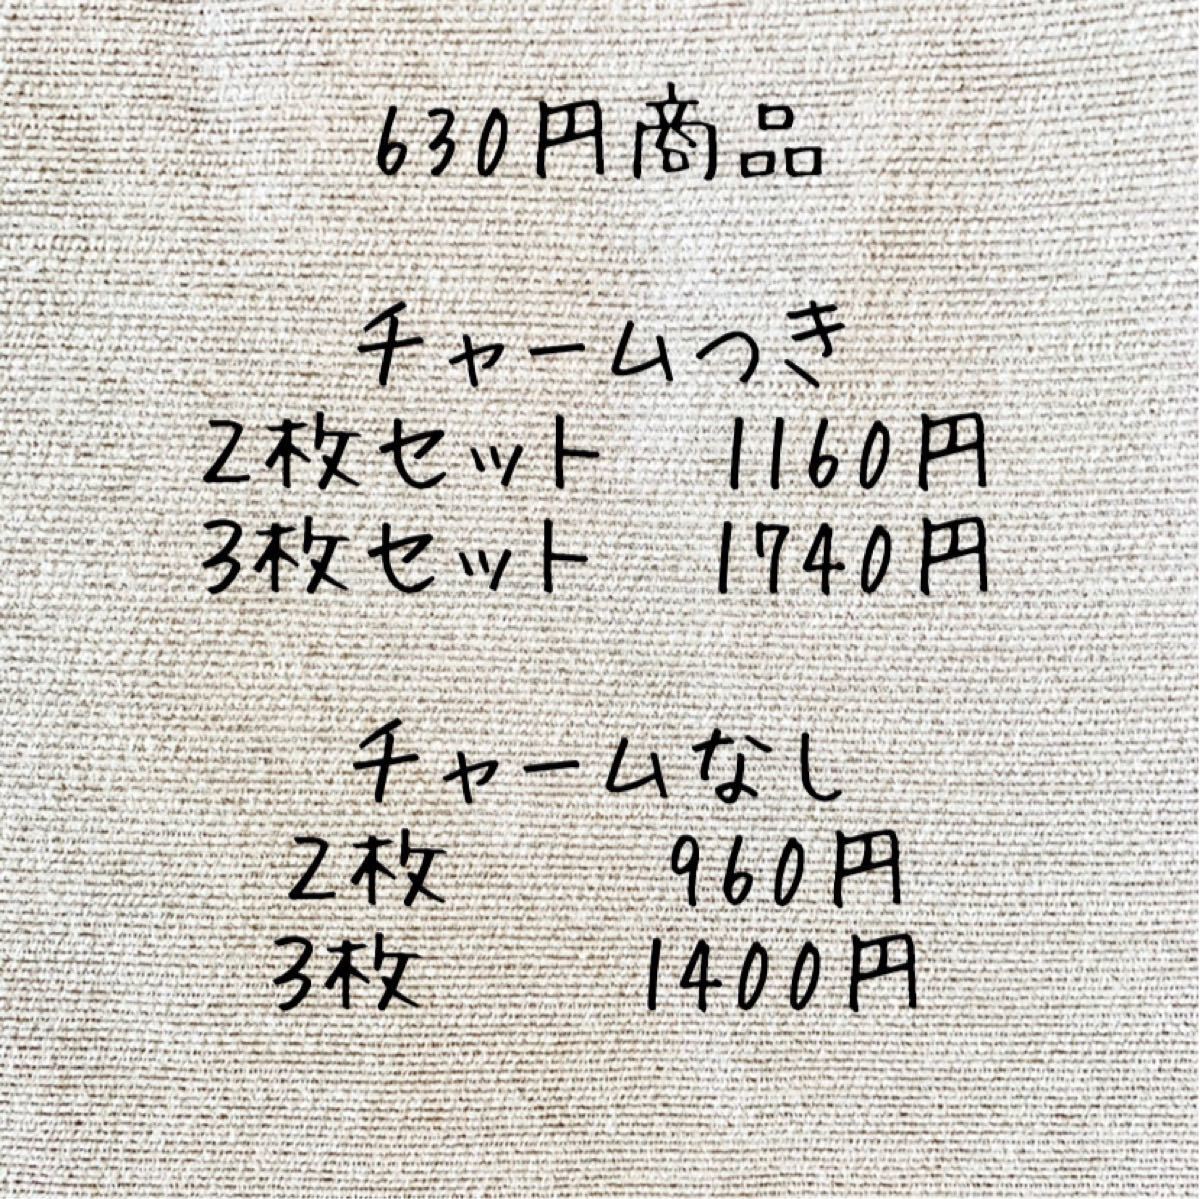 630円商品
チャームつき
2枚セット 1160円
3枚セット 1740円
チャームなし
2枚 960円
3枚 1400円